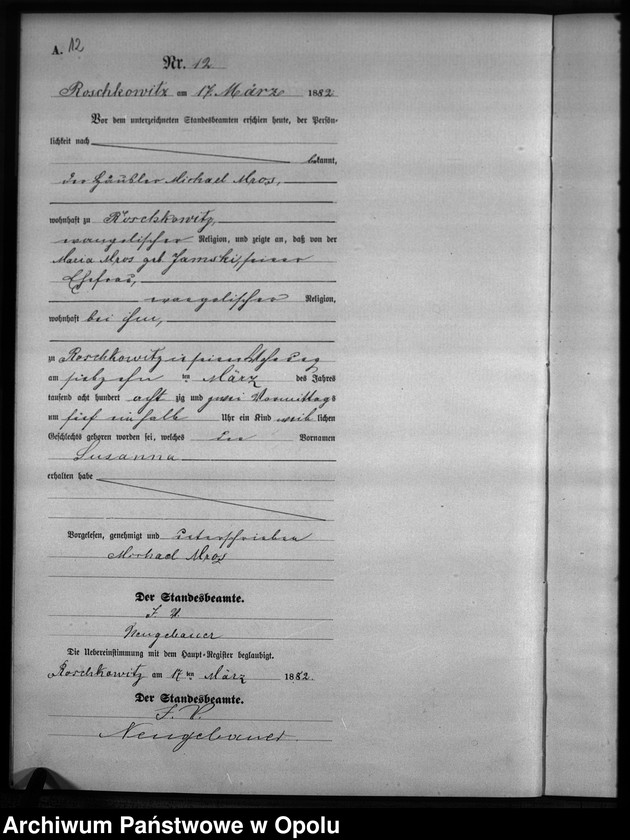 A. 12
Nr. 12
Roschkowitz am 17. März 1882
Vor dem unterzeichneten Standesbeamten erschien heute, der Persön-
lichkeit nach
bekannt,
der Häusler Michael Mros,
wohnhaft zu Roschkowitz,
evangelischer Religion, und zeigte an, daß von der
Maria Mros geb. seiner
Ehefrau,
evangelischer Religion,
wohnhaft bei ihm,
zu Roschkowitz in seiner Wohnung
am siebzehn ten März des Jahres
tausend acht hundert acht zig und zwei Vormittags
um fünf ein halb Uhr ein Kind weib lichen
Geschlechts geboren worden sei, welches den Vornamen
Susanna
erhalten habe
Vorgelesen, genehmigt und unterschrieben
Michael Mros
Der Standesbeamte.
J. V.
Neugebauer
Die Uebereinstimmung mit dem Haupt-Register beglaubigt.
Roschkowitz am 17 ten März 1882.
Der Standesbeamte.
J. V.
Neugebauer
Archiwum Państwowe w Opolu